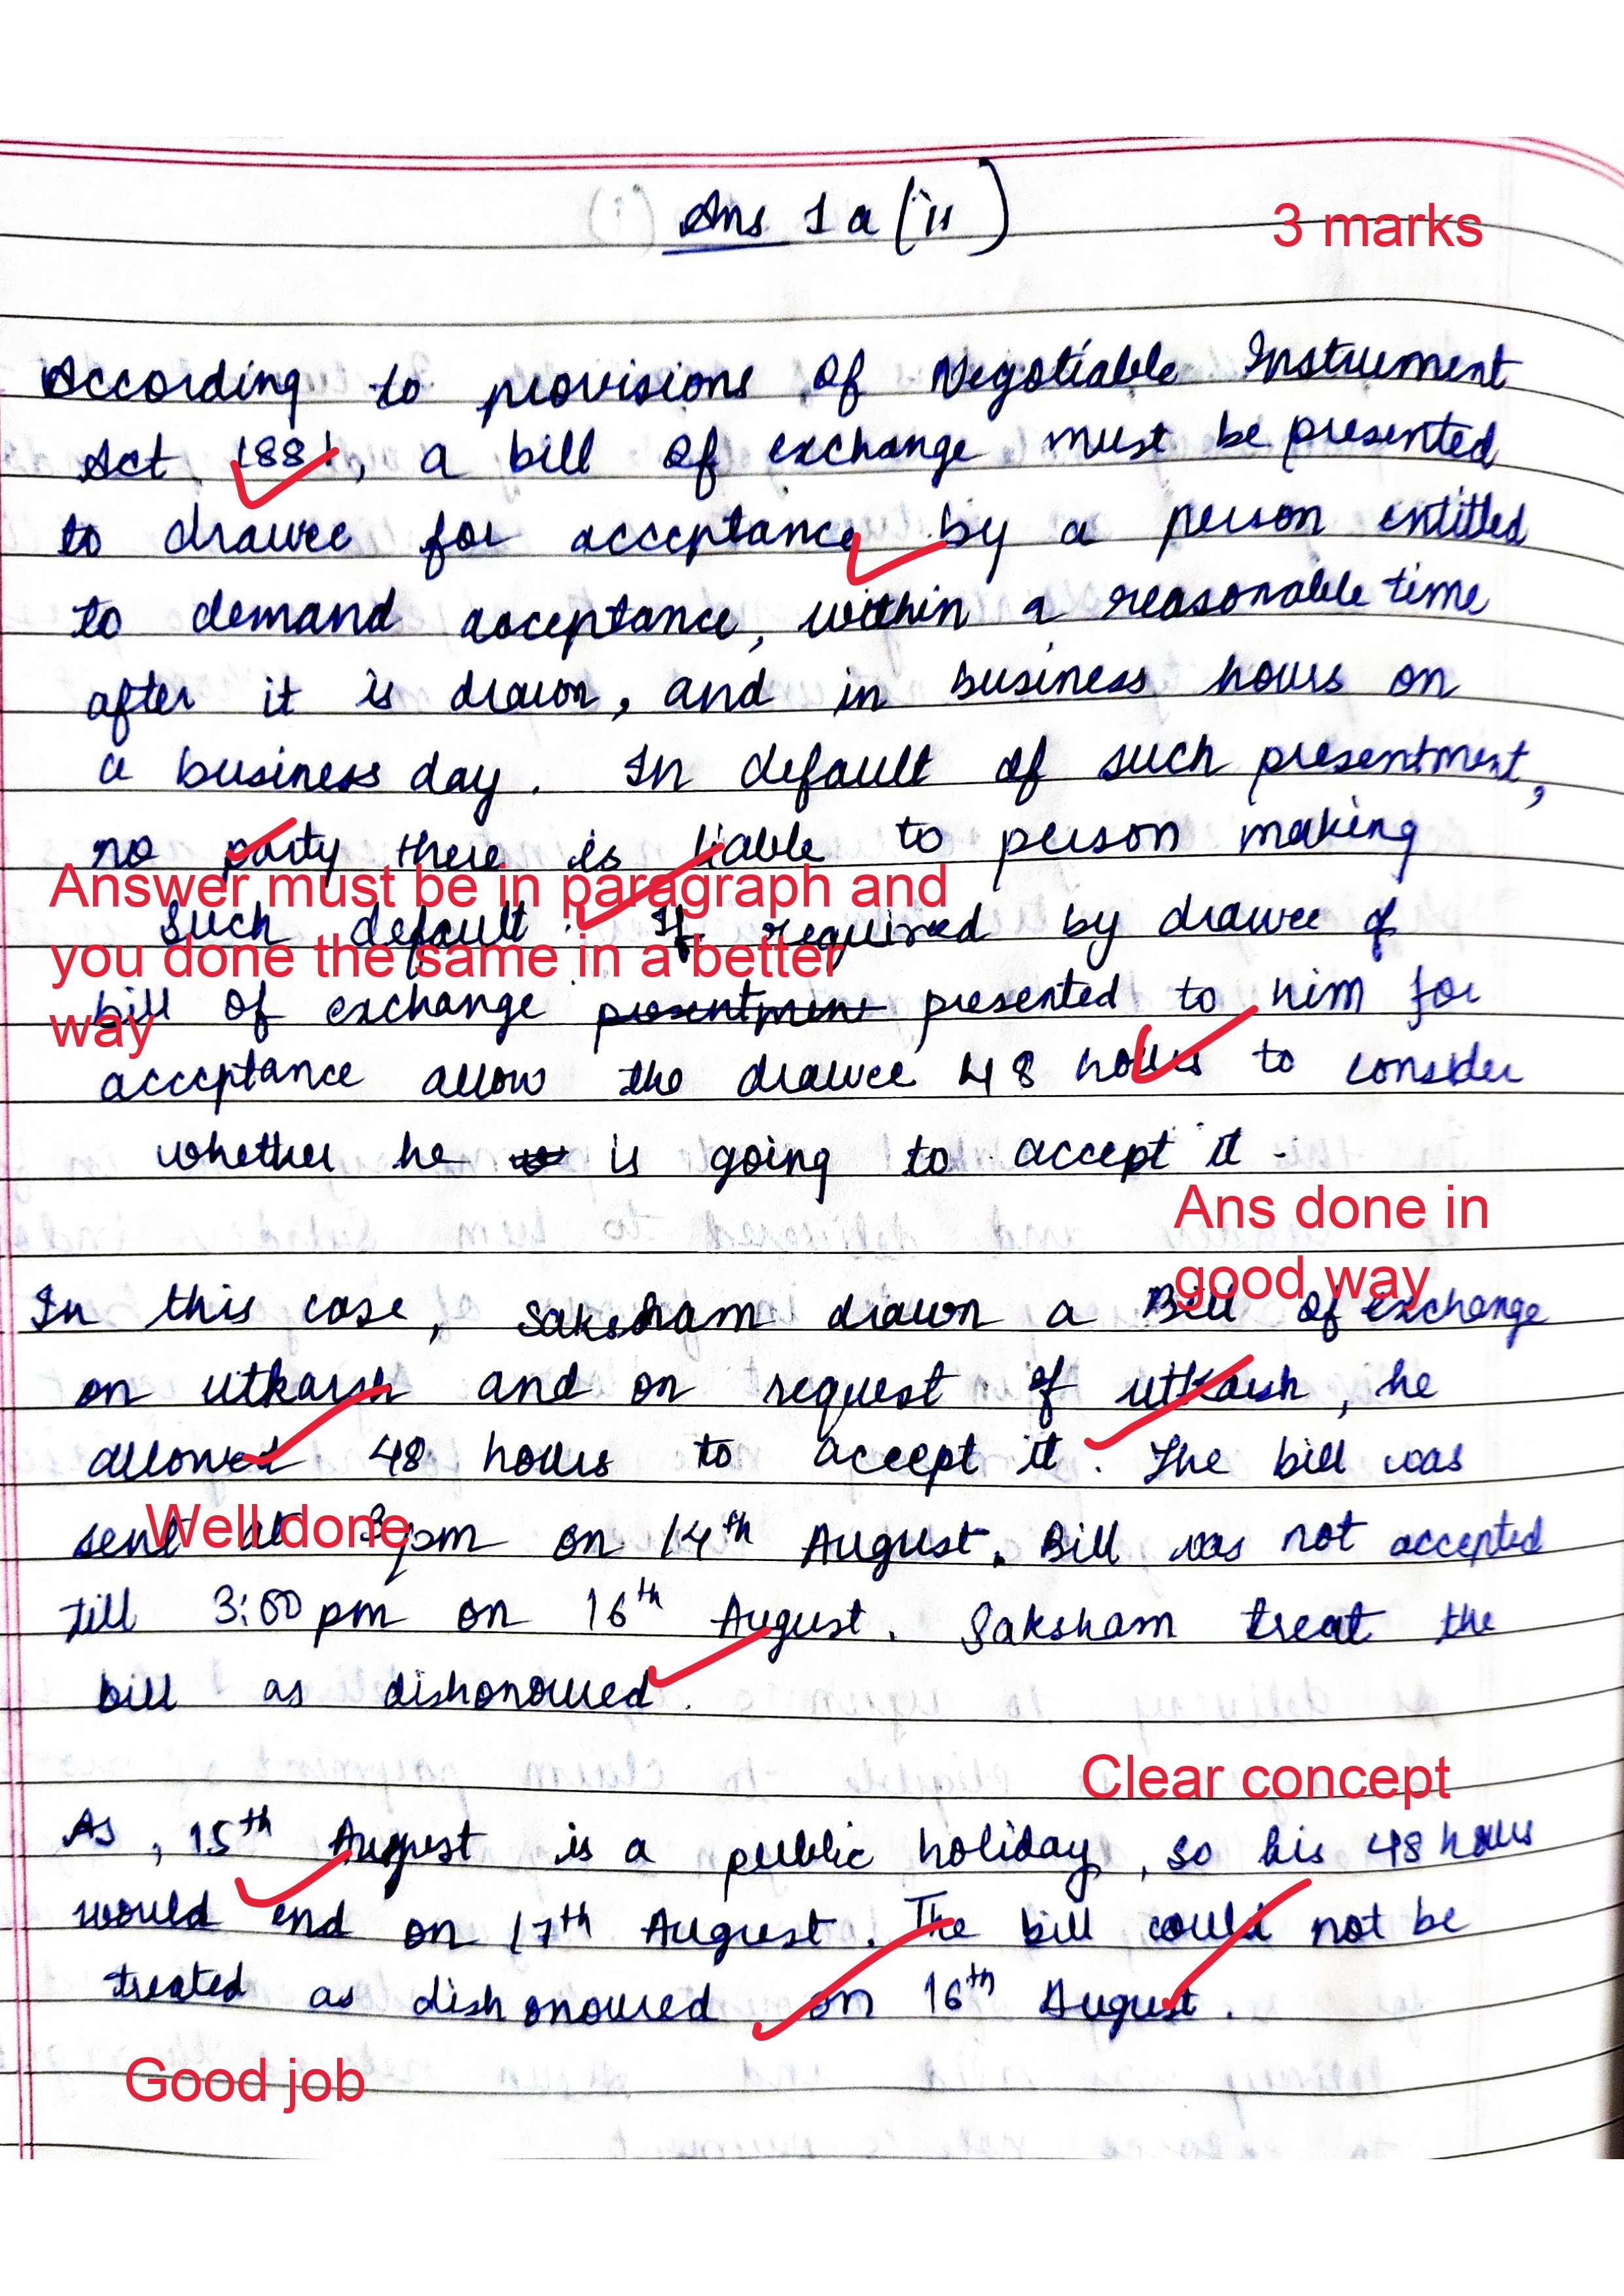 Ans 1 a (ii)
3 marks
According to provisions of Negotiable Instrument
Act 1881, a bill of exchange must be presented
to drawee for acceptance by a person entitled
to demand acceptance, within a reasonable time
after it is drawn, and in business hours on
a business day. In default of such presentment,
no party there is liable to person making
Answer must be in paragraph and
you done the same in a better
way
such default. If required by drawee of
bill of exchange presentment presented to him for
acceptance allow the drawee 48 hours to consider
whether he is going to accept it.
Ans done in
good way
In this case, Saksham drawn a Bill of exchange
on utkarsh and on request of utkarsh, he
allowed 48 hours to accept it. The bill was
Well done
sent at 3 pm on 14th August. Bill was not accepted
till 3:00 pm on 16th August. Saksham treat the
bill as dishonoured.
Clear concept
As, 15th August is a public holiday, so his 48 hours
would end on 17th August. The bill could not be
treated as dishonoured on 16th August.
Good job